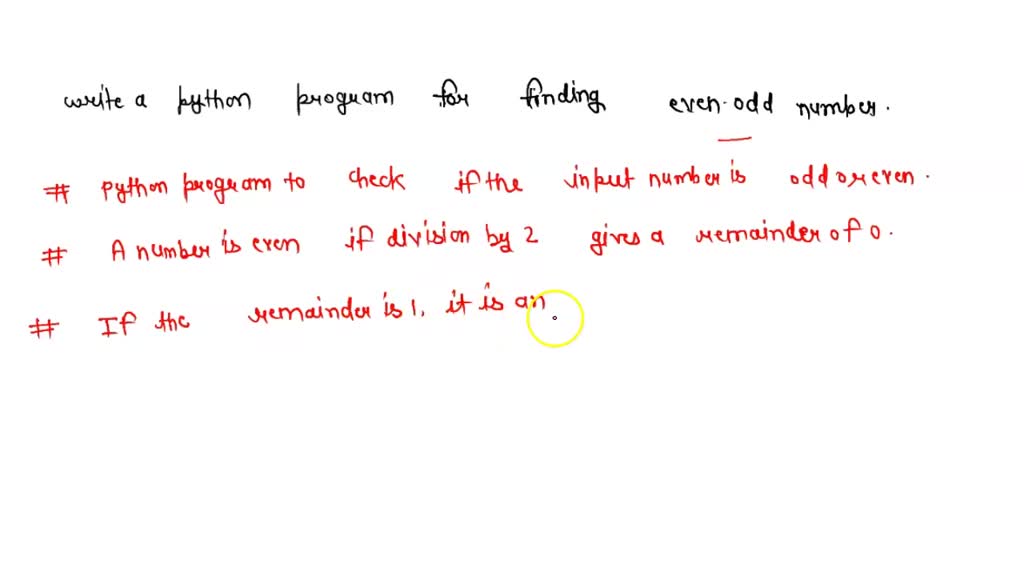 write a python program for finding even-odd number.
# python program to check if the input number is odd or even.
# A number is even if division by 2 gives a remainder of 0.
# If the remainder is 1, it is an